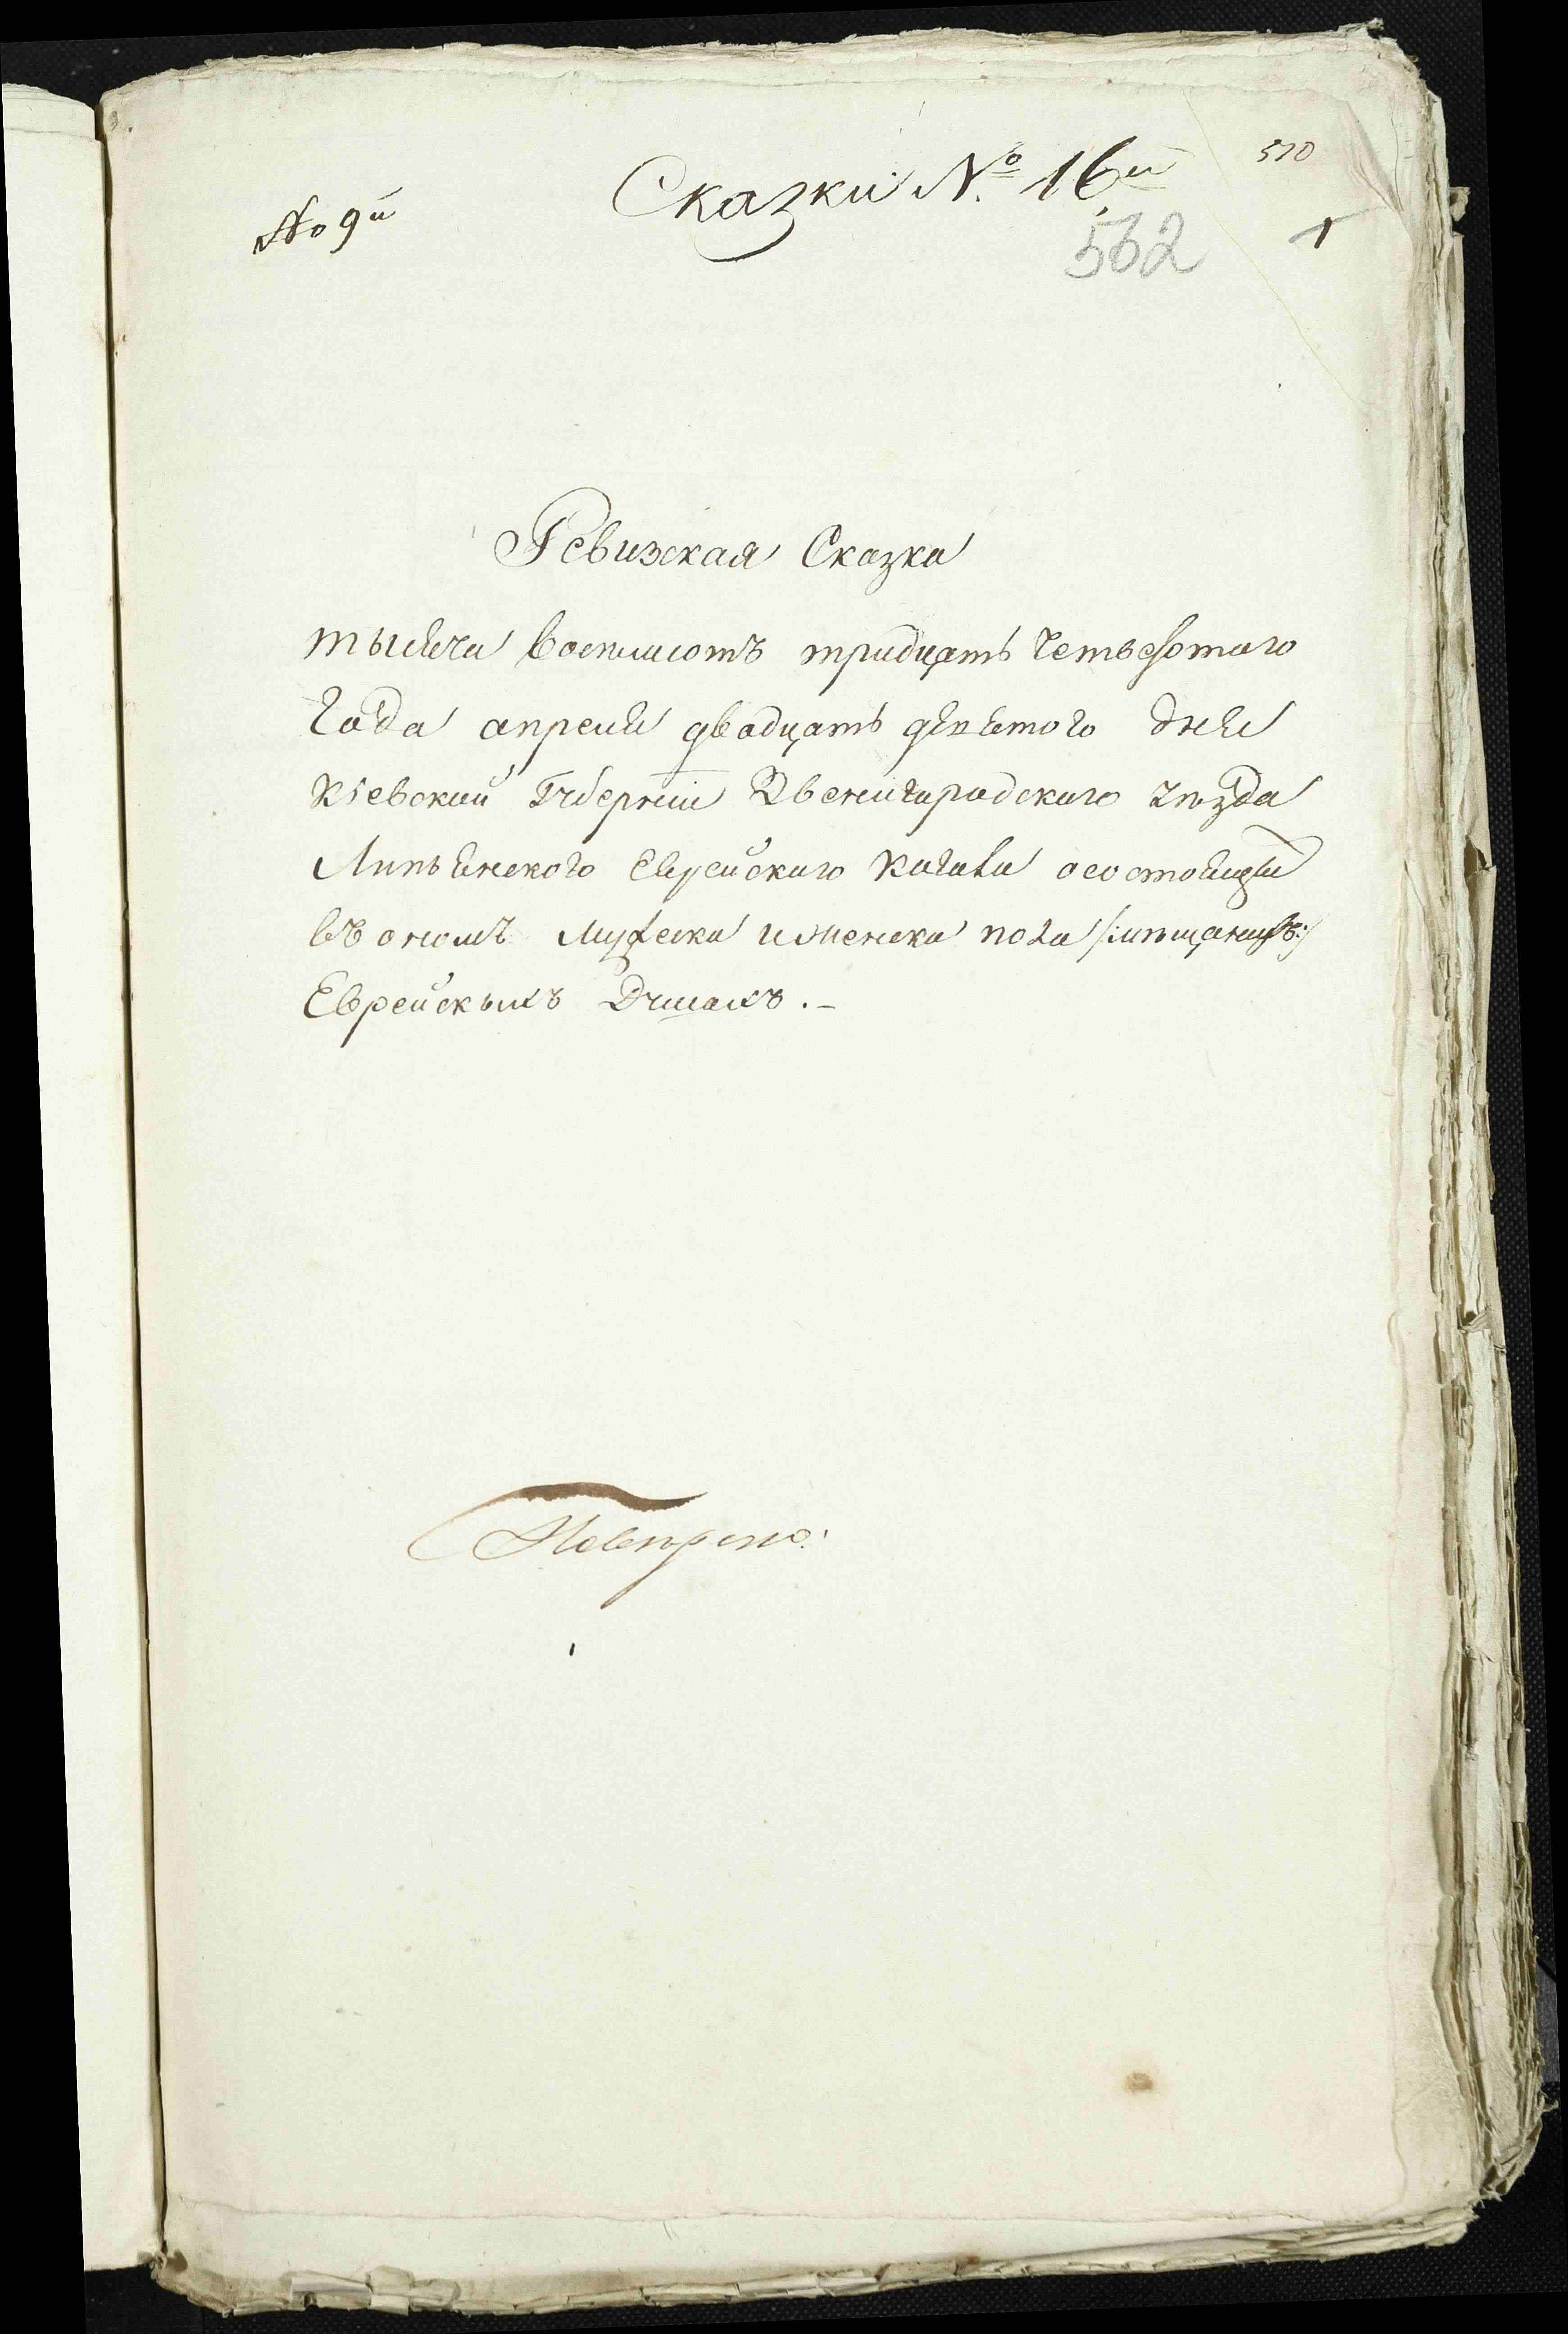 510
Сказки № 16й
№ 9й
562
1
Ревизская Сказка
тысяча восемьсотъ тридцать четвертаго
года апреля двадцать девятого дня
Кіевской Губерніи Звенигородскаго уѣзда
Липянского Еврейскаго Кагала осостоящи
въ ономъ мужеска и женска пола /:мѣщанахъ:/
Еврейскихъ Душахъ.-
Повѣрено: